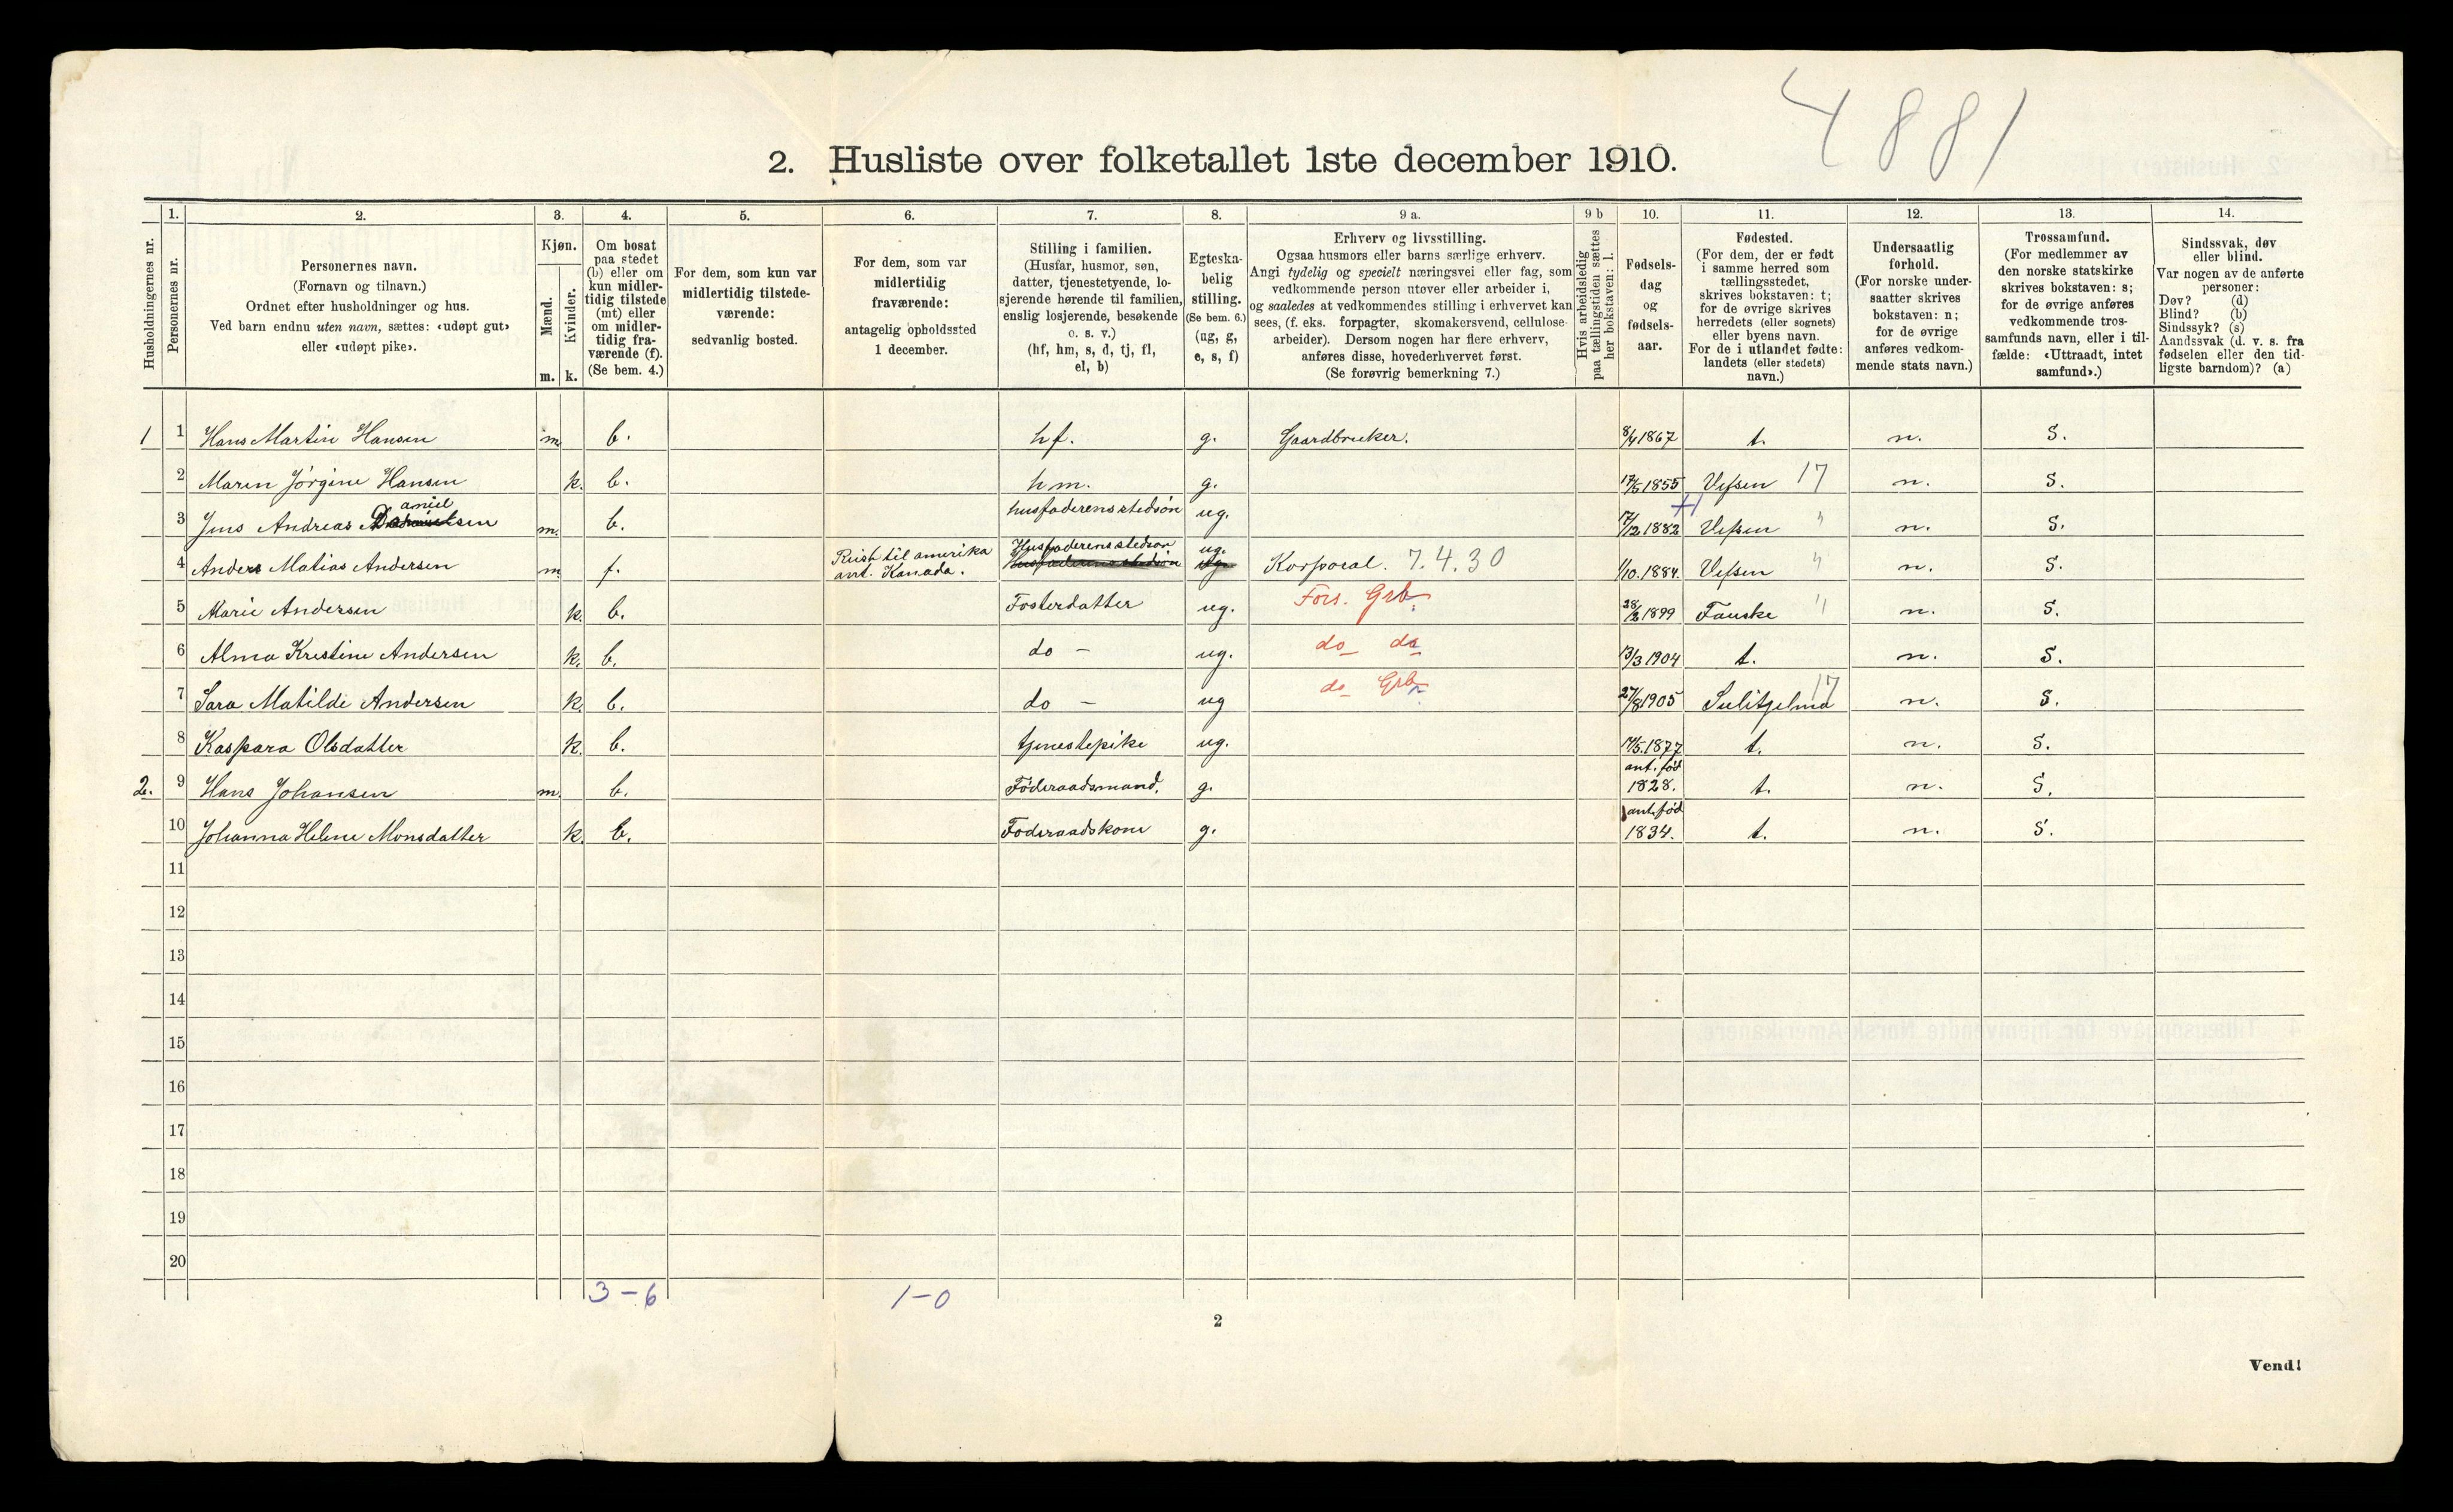 4881
2. Husliste over folketallet 1ste december 1910.
Husholdningernes nr.
1.
Personernes nr.
2.
Personernes navn.
(Fornavn og tilnavn.)
Ordnet efter husholdninger og hus.
Ved barn endnu uten navn, sættes: «udøpt gut»
eller «udøpt pike».
3.
Kjøn.
Mænd.
Kvinder.
m. k.
4.
Om bosat
paa stedet
(b) eller om
kun midler-
tidig tilstede
(mt) eller
om midler-
tidig fra-
værende (f).
(Se bem. 4.)
5.
For dem, som kun var
midlertidig tilstede-
værende:
sedvanlig bosted.
6.
For dem, som var
midlertidig
fraværende:
antagelig opholdssted
1 december.
7.
Stilling i familien.
(Husfar, husmor, søn,
datter, tjenestetyende, lo-
sjerende hørende til familien,
enslig losjerende, besøkende
o. s. v.)
(hf, hm, s, d, tj, fl,
el, b)
8.
Egteska-
belig
stilling.
(Se bem. 6.)
(ug, g,
e, s, f)
9 a.
Erhverv og livsstilling.
Ogsaa husmors eller barns særlige erhverv.
Angi tydelig og specielt næringsvei eller fag, som
vedkommende person utøver eller arbeider i,
og saaledes at vedkommendes stilling i erhvervet kan
sees, (f. eks. forpagter, skomakersvend, cellulose-
arbeider). Dersom nogen har flere erhverv,
anføres disse, hovederhvervet først.
(Se forøvrig bemerkning 7.)
9 b
Hvis arbeidsledig
paa tællingstiden sættes
her bokstaven: l.
10.
Fødsels-
dag
og
fødsels-
aar.
11.
Fødested.
(For dem, der er født
i samme herred som
tællingsstedet,
skrives bokstaven: t;
for de øvrige skrives
herredets (eller sognets)
eller byens navn.
For de i utlandet fødte:
landets (eller stedets)
navn.)
12.
Undersaatlig
forhold.
(For norske under-
saatter skrives
bokstaven: n;
for de øvrige
anføres vedkom-
mende stats navn.)
13.
Trossamfund.
(For medlemmer av
den norske statskirke
skrives bokstaven: s;
for de øvrige anføres
vedkommende tros-
samfunds navn, eller i til-
fælde: «Uttraadt, intet
samfund».)
14.
Sindssvak, døv
eller blind.
Var nogen av de anførte
personer:
Døv? (d)
Blind? (b)
Sindssyk? (s)
Aandssvak (d. v. s. fra
fødselen eller den tid-
ligste barndom)? (a)
1 1 Hans Martin Hansen m. b. hf. g. Gaardbruker. 8/4 1867 t. n. S.
2 Maren Jørgine Hansen k. b. hm. g. 17/5 1855 Vefsen 17 n. S.
3 Jens Andreas Danielsen m. b. husfaderens stedsøn ug. 17/12 1882 Vefsen " n. S.
4 Anders Matias Andersen m f. Reist til amerika ant. Kanada. Husfaderens stedsøn ug. Korporal. 7.4.30 1/10.1884. Vefsen " n. S.
5 Marie Andersen k. b. Fosterdatter ug. Fors. Grb. 28/2 1899 Fauske " n. S.
6 Alma Kristine Andersen k. b. do - ug. do do 13/3 1904 t. n. S.
7 Sara Matilde Andersen k. b. do - ug do Grb 27/8 1905 Sulitjelma 17 n. S.
8 Kaspara Olsdatter k. b. tjenestepike ug. 14/5.1877 t. n. S.
2. 9 Hans Johansen m. b. Føderaadsmand. g. ant. fød 1828. t. n. S.
10 Johanna Helene Monsdatter k. b. Føderaadskone g. ant. fød 1834. t. n. S.
11
12
13
14
15
16
17
18
19
20
3-6 1-0
2
Vend!